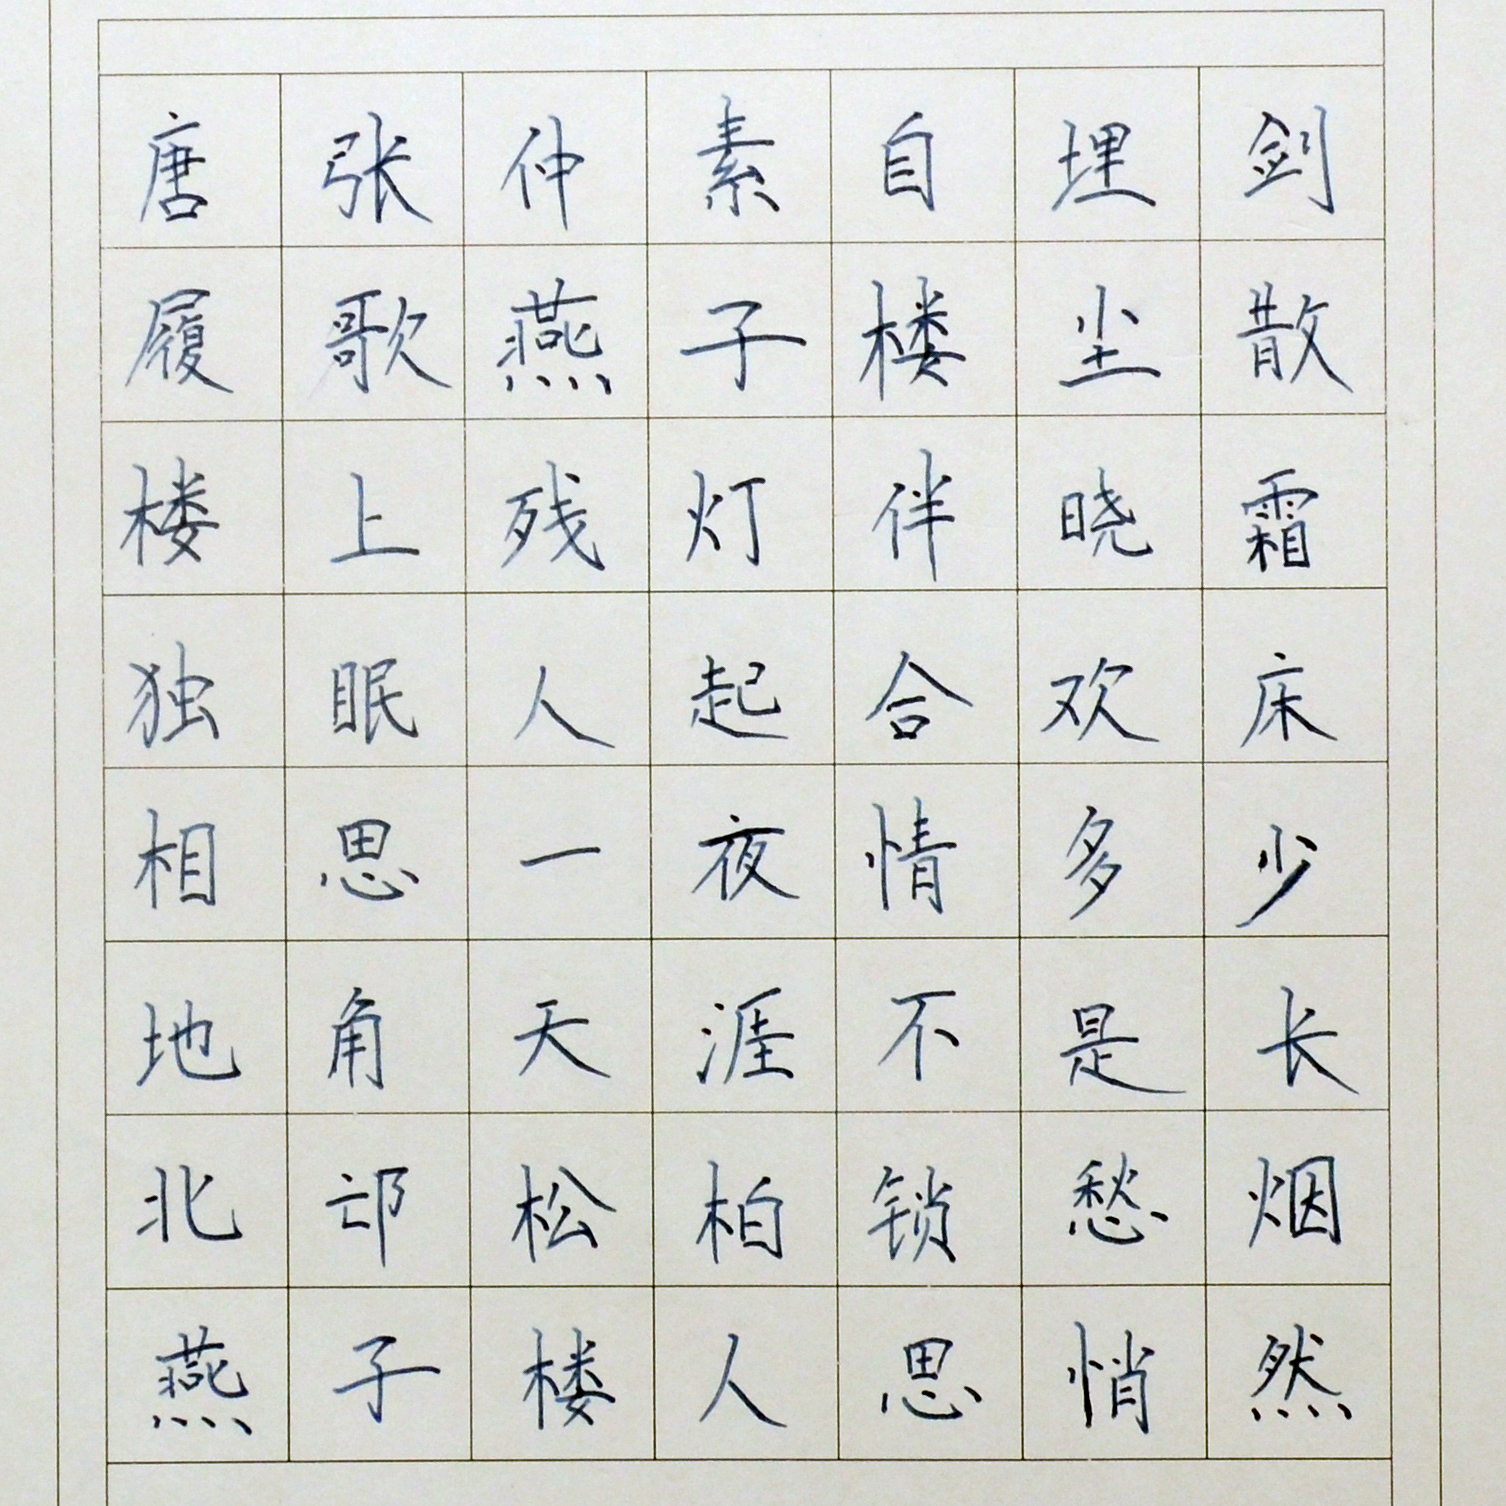 唐张仲素自埋剑
履歌燕子楼尘散
楼上残灯伴晓霜
独眠人起合欢床
相思一夜情多少
地角天涯不是长
北邙松柏锁愁烟
燕子楼人思悄然